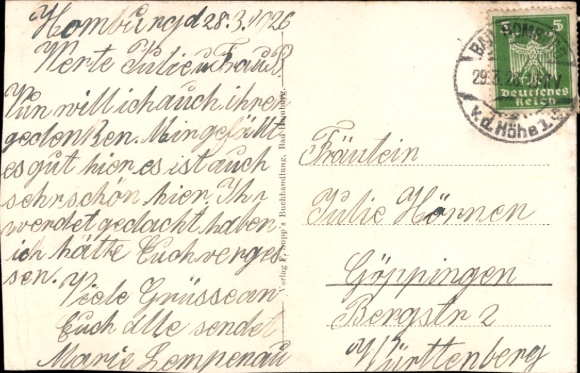 Homburg d 28.3.1926
Werte Julie u Frau B
Nun will ich auch ihrer
gedenken. Mir gefällt
es gut hier. es ist auch
sehr schön hier. Ihr
werdet gedacht haben
ich hätte Euch verges
sen.
Viele Grüsse an
Euch alle sendet
Marie Lempenau
Verlag F. Supp's Buchhandlung, Bad Homburg.
5 5
Deutsches
Reich
BAD HOMBURG
29.3.26
v.d. Höhe 1
Fräulein
Julie Hönnen
Göppingen
Bergstr 2
Württenberg